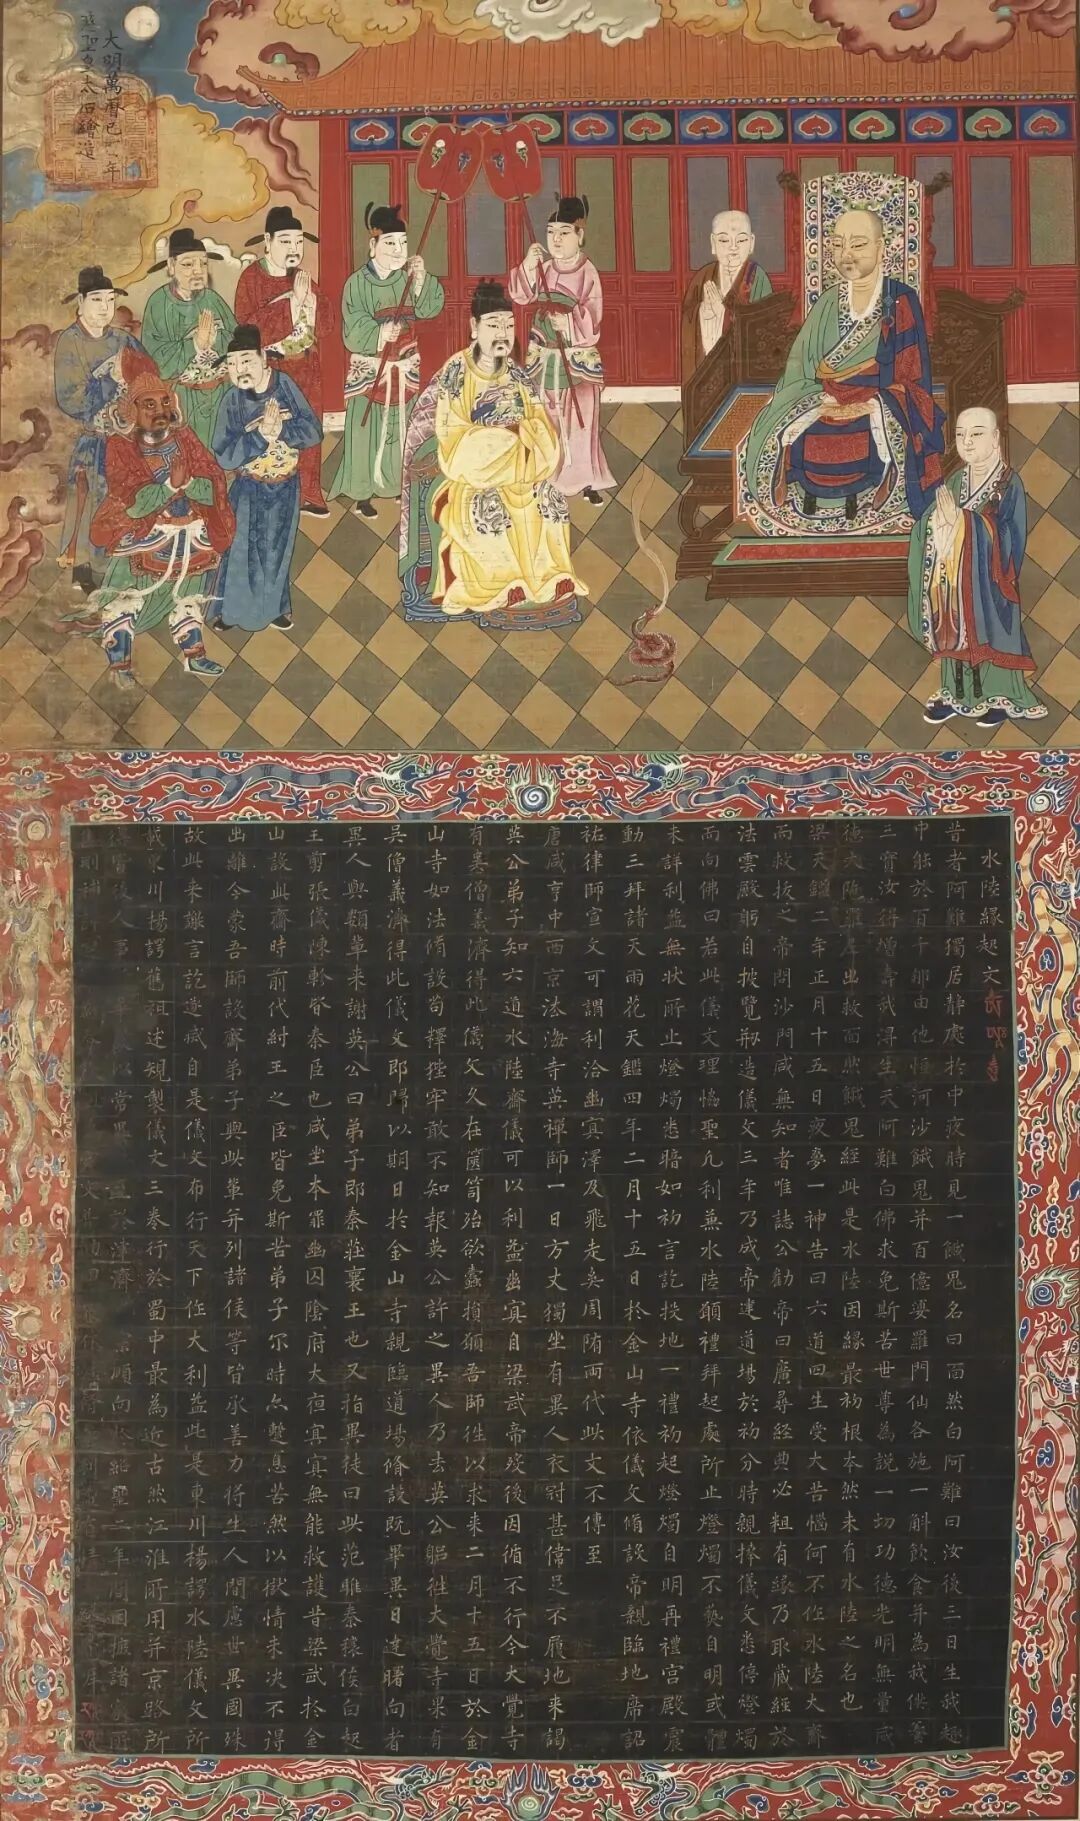 大明萬曆己年
慈聖皇太后繪造
水陸緣起文
昔者阿難獨居靜處於中夜時見一餓鬼名曰面然白阿難曰汝後三日生我趣
中能於百千那由他恒河沙餓鬼并百億婆羅門仙各施一斛飲食并為我供養
三寶汝得增壽我得生天阿難白佛求免斯苦世尊為說一切功德光明無量威
德大陁羅尼出救面然餓鬼經此是水陸因緣最初根本然未有水陸之名也
梁天鑑二年正月十五日夜夢一神告曰六道四生受大苦惱何不作水陸大齋
而救拔之帝問沙門咸無知者唯誌公勸帝曰廣尋經典必粗有緣乃取藏經於
法雲殿躬自披覽剏造儀文三年乃成帝建道場於初分時親捧儀文悉停燈燭
而向佛曰若此儀文理愜聖凡利兼水陸願禮拜起處所止燈燭不爇自明或體
未詳利益無狀所止燈燭悉暗如初言訖投地一禮初起燈燭自明再禮宮殿震
動三拜諸天雨花天鑑四年二月十五日於金山寺依儀文脩設帝親臨地席詔
祐律師宣文可謂利洽幽冥澤及飛走矣周隋兩代此文不傳至
唐咸亨中西京法海寺英禪師一日方丈獨坐有異人衣冠甚偉足不履地來謁
英公弟子知六道水陸齋儀可以利益幽冥自梁武帝歿後因循不行今大覺寺
有吳僧義濟得此儀文久在篋笥殆欲蠹損願吾師往以求來二月十五日於金
山寺如法脩設苟釋狴牢敢不知報英公許之異人乃去英公躬往大覺寺果有
吳僧義濟得此儀文即歸以期日於金山寺親臨道場脩設既畢異日達曙向者
異人與類輩來謝英公曰弟子即秦莊襄王也又指異徒曰此范雎秦穰侯白起
王翦張儀陳軫皆秦臣也咸坐本罪幽囚陰府大夜冥冥無能救護昔梁武於金
山設此齋時前代紂王之臣皆免斯苦弟子尔時亦蹔息苦然以獄情未決不得
出離今蒙吾師設齋弟子與此輩并列諸侯等皆承善力將生人間慮世異國殊
故此來謝言訖遂滅自是儀文布行天下作大利益此是東川楊諤水陸儀文所
載東川楊諤舊祖述規製儀文三卷行於蜀中最為近古然江淮所用并京路所